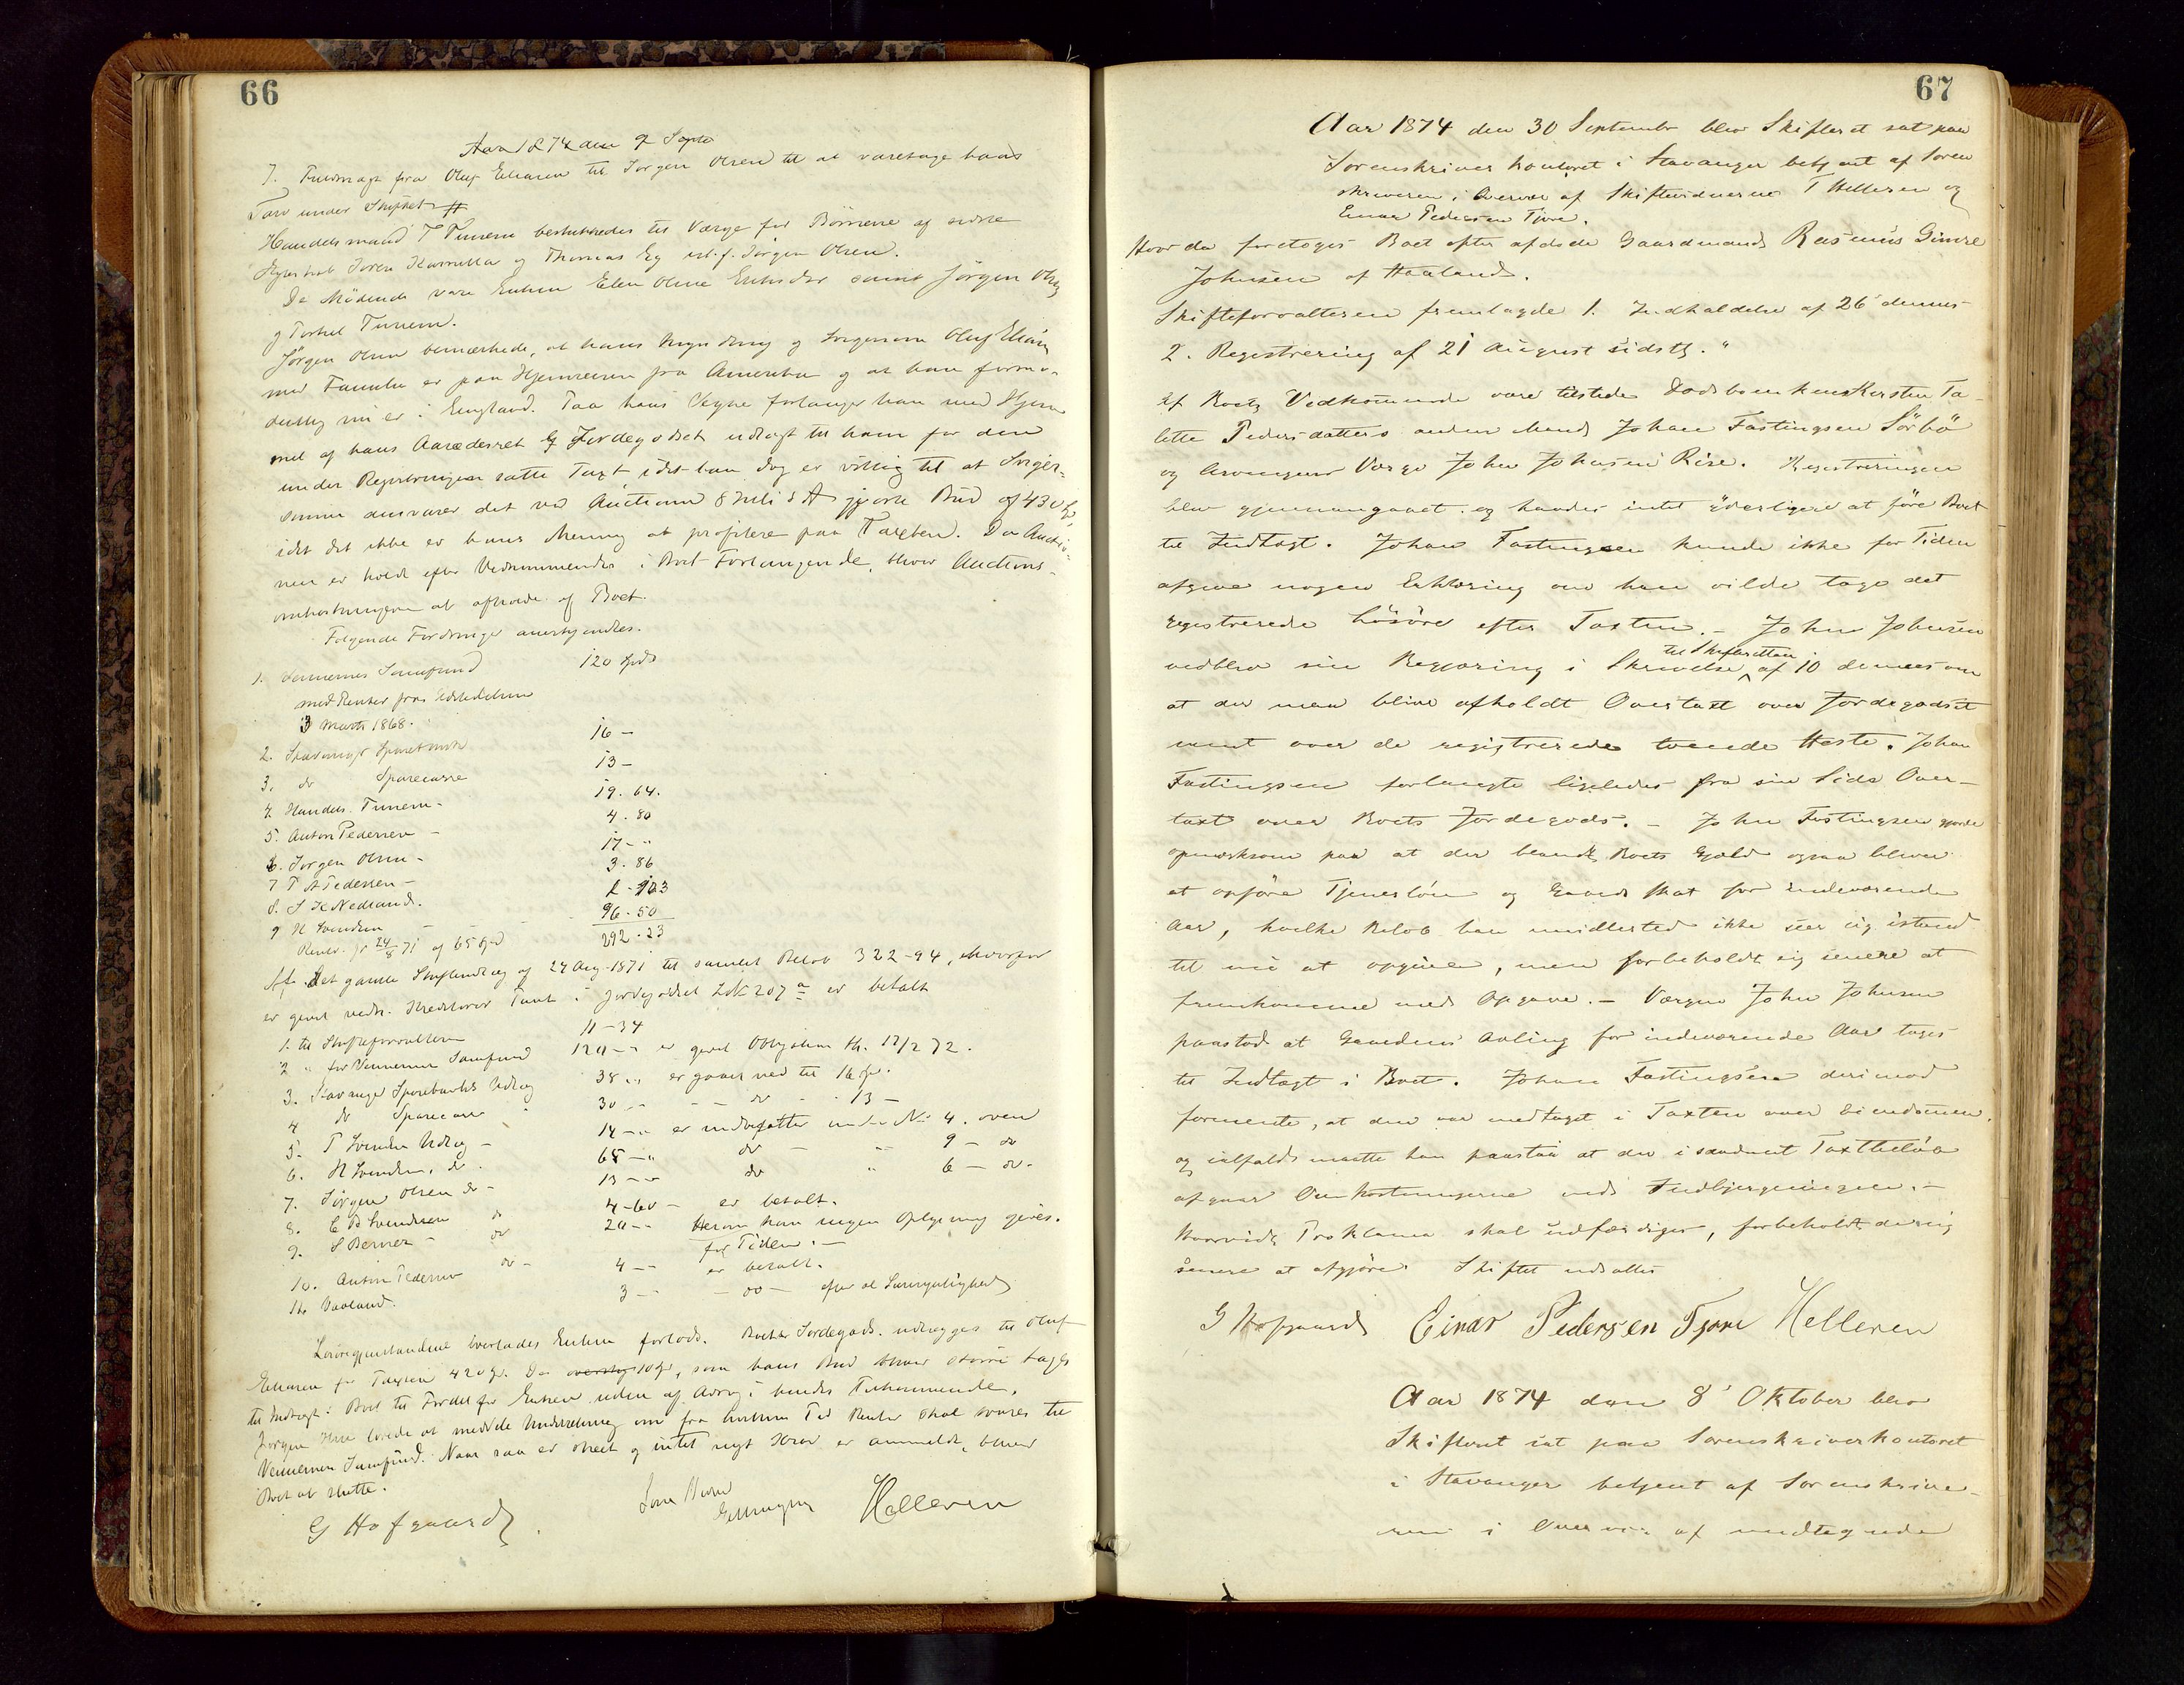 66
Aar 1874 den 9 Septr
7. Fuldmagt fra Oluf Eliasen til Jørgen Olsen til at varetage hans
Tarv under Skiftet
Handelsmand T Tunem beskikkedes til Værge for Børnene af sidste
Ægteskab Søren Karinus og Thomas Eg
De Mødende vare Enken Elen Oline samt Jørgen Olsen
og Torkel Tunem.
Jørgen Olsen bemærkede, at hans Myndling og Svigersøn Oluf Eliasen
med Familie er paa Hjemreisen fra Amerika og at han formo-
dentlig nu er i England. Paa hans Vegne forlanger han med Hjem-
mel af hans Aasædesret Jordegodset udlagt til ham for den
under Registreringen satte Taxt idet han dog er villig til at Sviger-
sønnen ansvarer det ved Auctionen 8 Juli d A gjorte Bud af 430 Spd,
idet det ikke er hans Mening at profitere paa Taxten. Da Auctio-
nen er holdt efter Vedkommendes i Boet Forlangende, bliver Auctions-
omkostningerne at afholde af Boet.
Følgende Fordringer anerkjendtes.
1. Vennernes Samfund 120 Spd
med Renter fra Udstedelsen
3 Marts 1868.
2. Stavanger Sparebank 16 -
3. do Sparecasse 13 -
4. Handelsm. Tunem - 19. 64.
5. Anton Pedersen - 4. 80
6. Jørgen Olsen - 17 - "
7 T A Pedersen - 3. 86
8. S K Nedland.
9 H Svendsen 96. 50
Renter fr 24/8 71 af 65 Spd 292. 23
Af det gamle Skifteudlæg af 24 Aug. 1871 til samlet Beløb 322-94, hvorfor
er givet vedk. Kreditorer Pant i Jordegodset er betalt
1. til Skifteforvalteren 11-34
2 " for Vennernes Samfund 120 - " er givet Obligation
3. Stavanger Sparebanks Udlæg 38 " er gaaet ned til 16 Spd.
4 do Sparecasse 30 - - - do - 13 -
5. T Svendsen Udlæg - 14 - " er indbefattet under No 4. oven
6. H Svendsen, do. 65 - " do - - 9 - do
7. Jørgen Olsen do - 13 - - do " 6 - do.
8. E B Svendsen do 4-60 - er betalt.
9. S Berner - do 20 - - Herom kan ingen Oplysning gives.
for Tiden. -
10. Anton Pedersen do - 4 - - er betalt.
11. Vaaland. 3 - - - do - efter al Sandsynlighed
Løsøregjenstandene overlades Enken forlods. Boets Jordegods. udlægges til Oluf
Eliasen for Taxten 420 Spd. De 10 Spd, som hans Bud bliver større tages
til Indtægt i Boet til Fordel for Enken uden af Arv i hendes Tilkommende.
Jørgen Olsen lovede at meddele Underretning om fra hvilken Tid Renter skal svares til
Vennernes Samfund. Naar saa er skeet og intet nyt Krav er anmeldt, bliver
Boet at slutte.
G Hofgaard Helleren
67
Aar 1874 den 30 September blev Skifteret sat paa
Sorenskriver kontoret i Stavanger betjent af Soren
skriveren i Overvær af Skiftevidnerne T Helleren og
Einar Pedersen Tjore.
Hvor da foretoges Boet efter afdøde Gaardmand Rasmus Gimre
Johnsen af Haaland.
Skifteforvalteren fremlagde 1. Indkaldelse af 26 dennes
2. Registrering af 21 August sidstl. "
Af Boets Vedkommende vare tilstede Dødsboenken Kersten Ta-
lette Pedersdatters anden Mand Johan Fastingsen Sörbö
og Arvingens Værge John Johnsen Rise. Registreringen
blev gjennemgaaet. og havdes intet yderligere at före Boet
til Indtægt. Johan Fastingsen kunde ikke for Tiden
afgive nogen Erklæring om han vilde tage det
registrerede Lösöre efter Taxten. - John Johnsen
vedblev sin Begjæring i Skrivelse til Skifteretten af 10 dennes om
at der maa blive afholdt Overtaxt over Jordegodset
samt over de registrerede tvende Heste. Johan
Fastingsen forlangte ligeledes fra sin Side Over-
taxt over Boets Jordegods. - John Fastingsen gjorde
opmærksom paa at der blandt Boets Gjæld ogsaa bliver
at opföre Tjenerlön og Gaards Skat for indeværende
Aar, hvilke Beløb han imidlertid ikke saa sig istand
til nu at opgive, men forbeholdt sig senere at
fremkomme med Opgave. - Værgen John Johnsen
paastod at Gaardens Avling for indeværende Aar toges
til Indtægt i Boet. Johan Fastingsen derimod
formente, at den var medtaget i Taxten over Eiendommen.
og ialfald maatte han paastaa at der i saadant Taxtbeløb
afgaar Omkostningerne ved Indbjergningen. -
Hvorvidt Proklama skal udfærdiges, forbeholdt de sig
senere at afgjöre. Skiftet udsattes
G Hofgaard Einar Pedersen Tjore Helleren
Aar 1874 den 8' Oktober blev
Skifteret sat paa Sorenskriverkontoret
i Stavanger betjent af Sorenskrive-
ren i Overvær af undtegnede